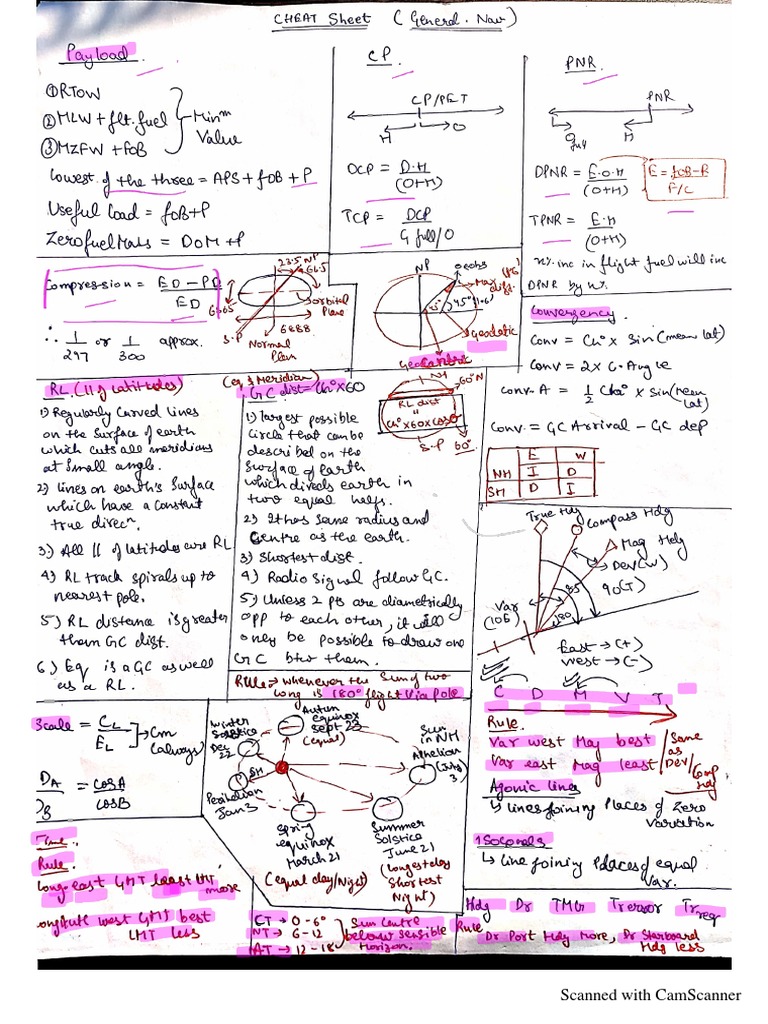 CHEAT Sheet (General. Nav)
Payload
① RTOW
② MLW + flt. fuel
③ MZFW + FOB
Minᵐ
Value
Lowest of the three = APS + fOB + P
Useful Load = foB+P
Zero fuel Mass = DOM + P
CP
CP/PET
H
O
DCP = D.H
(O+H)
TCP = DCP
G full/O
PNR
PNR
O
full
H
DPNR = E.O.H
(O+H)
E = foB-R
F/C
TPNR = E.H
(O+H)
x% inc in flight fuel will inc
DPNR by x%.
Compression = ED - PD
ED
∴ 1 or 1 approx.
297 300
23.5 NP
66.5
orbital
Plane
S.P
Normal
Plan
NP
Max
diff.
45°
Geodetic
Geocentric
Convergency
Conv = Ch° x Sin (mean lat)
Conv = 2 x C. Angle
Conv. A = 1 Ch° x Sin (mean
2 lat)
Conv = GC Arrival - GC dep
E W
NH I D
SH D I
RL. (|| of Latitudes)
1) Regularly Curved Lines
on the Surface of earth
which cuts all meridians
at Small angle.
2) Lines on earth's Surface
which have a Constant
true direcⁿ.
3) All || of latitudes are RL
4) RL track spirals up to
nearest pole.
5) RL distance is greater
them GC dist.
6) Eq is a GC as well
as a RL.
(eq & Meridian)
GC dist = Ch° x 60
1) largest possible
Circle that can be
described on the
Surface of Earth
which divides earth in
two equal helfs.
2) It has same radius and
Centre as the earth.
3) Shortest dist.
4) Radio Signal follow GC.
5) Unless 2 pts are diametrically
opp to each other, it will
only be possible to draw one
GC btw them.
NH
60°N
RL dist
=
Ch° x 60 x Cos θ
60°
S.P
Rule → whenever the Sum of two
long is 180° flight Via pole
True Hdg
Compass Hdg
Mag Hdg
Dev (W)
90(T)
85
80
Var
(10E)
East → (+)
West → (-)
C D M V T
Rule
Var west Mag best
Var east Mag least
Same
as
Dev/
Comp
Hdg
Agonic lines
↳ Lines joining Places of Zero
Variation
Isogonals
↳ Line joining Places of equal
Var.
Scale = CL
EL
Cm
(always)
DA = CosA
DB CosB
Winter
Solstice
Dec
22
Autum
equinox
Sept 23
(equal)
Sun
in NH
Aphelian
(July
3)
SH
Perihelion
Jan 3
Spring
equinox
March 21
(equal day/Night)
Summer
Solstice
June 21
(Longest day
Shortest
Night)
Time.
Rule.
Long. east GMT Least LMT
more
Longitude west GMT best
LMT less
CT → 0 - 6°
NT → 6 - 12
AT → 12 - 18
Sun Centre
below Sensible
Horizon.
Hdg Dr TMG Trerror Trreq
Rule
Dr Port Hdg More, Dr Starboard
Hdg less
Scanned with CamScanner